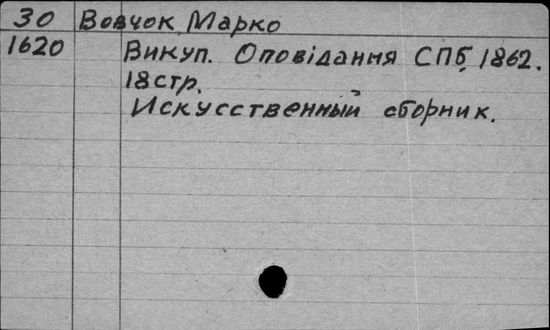 30 Вовчок Марко
1620 Викуп. Оповідання СПб, 1862.
18 стр.
Искусственный сборник.